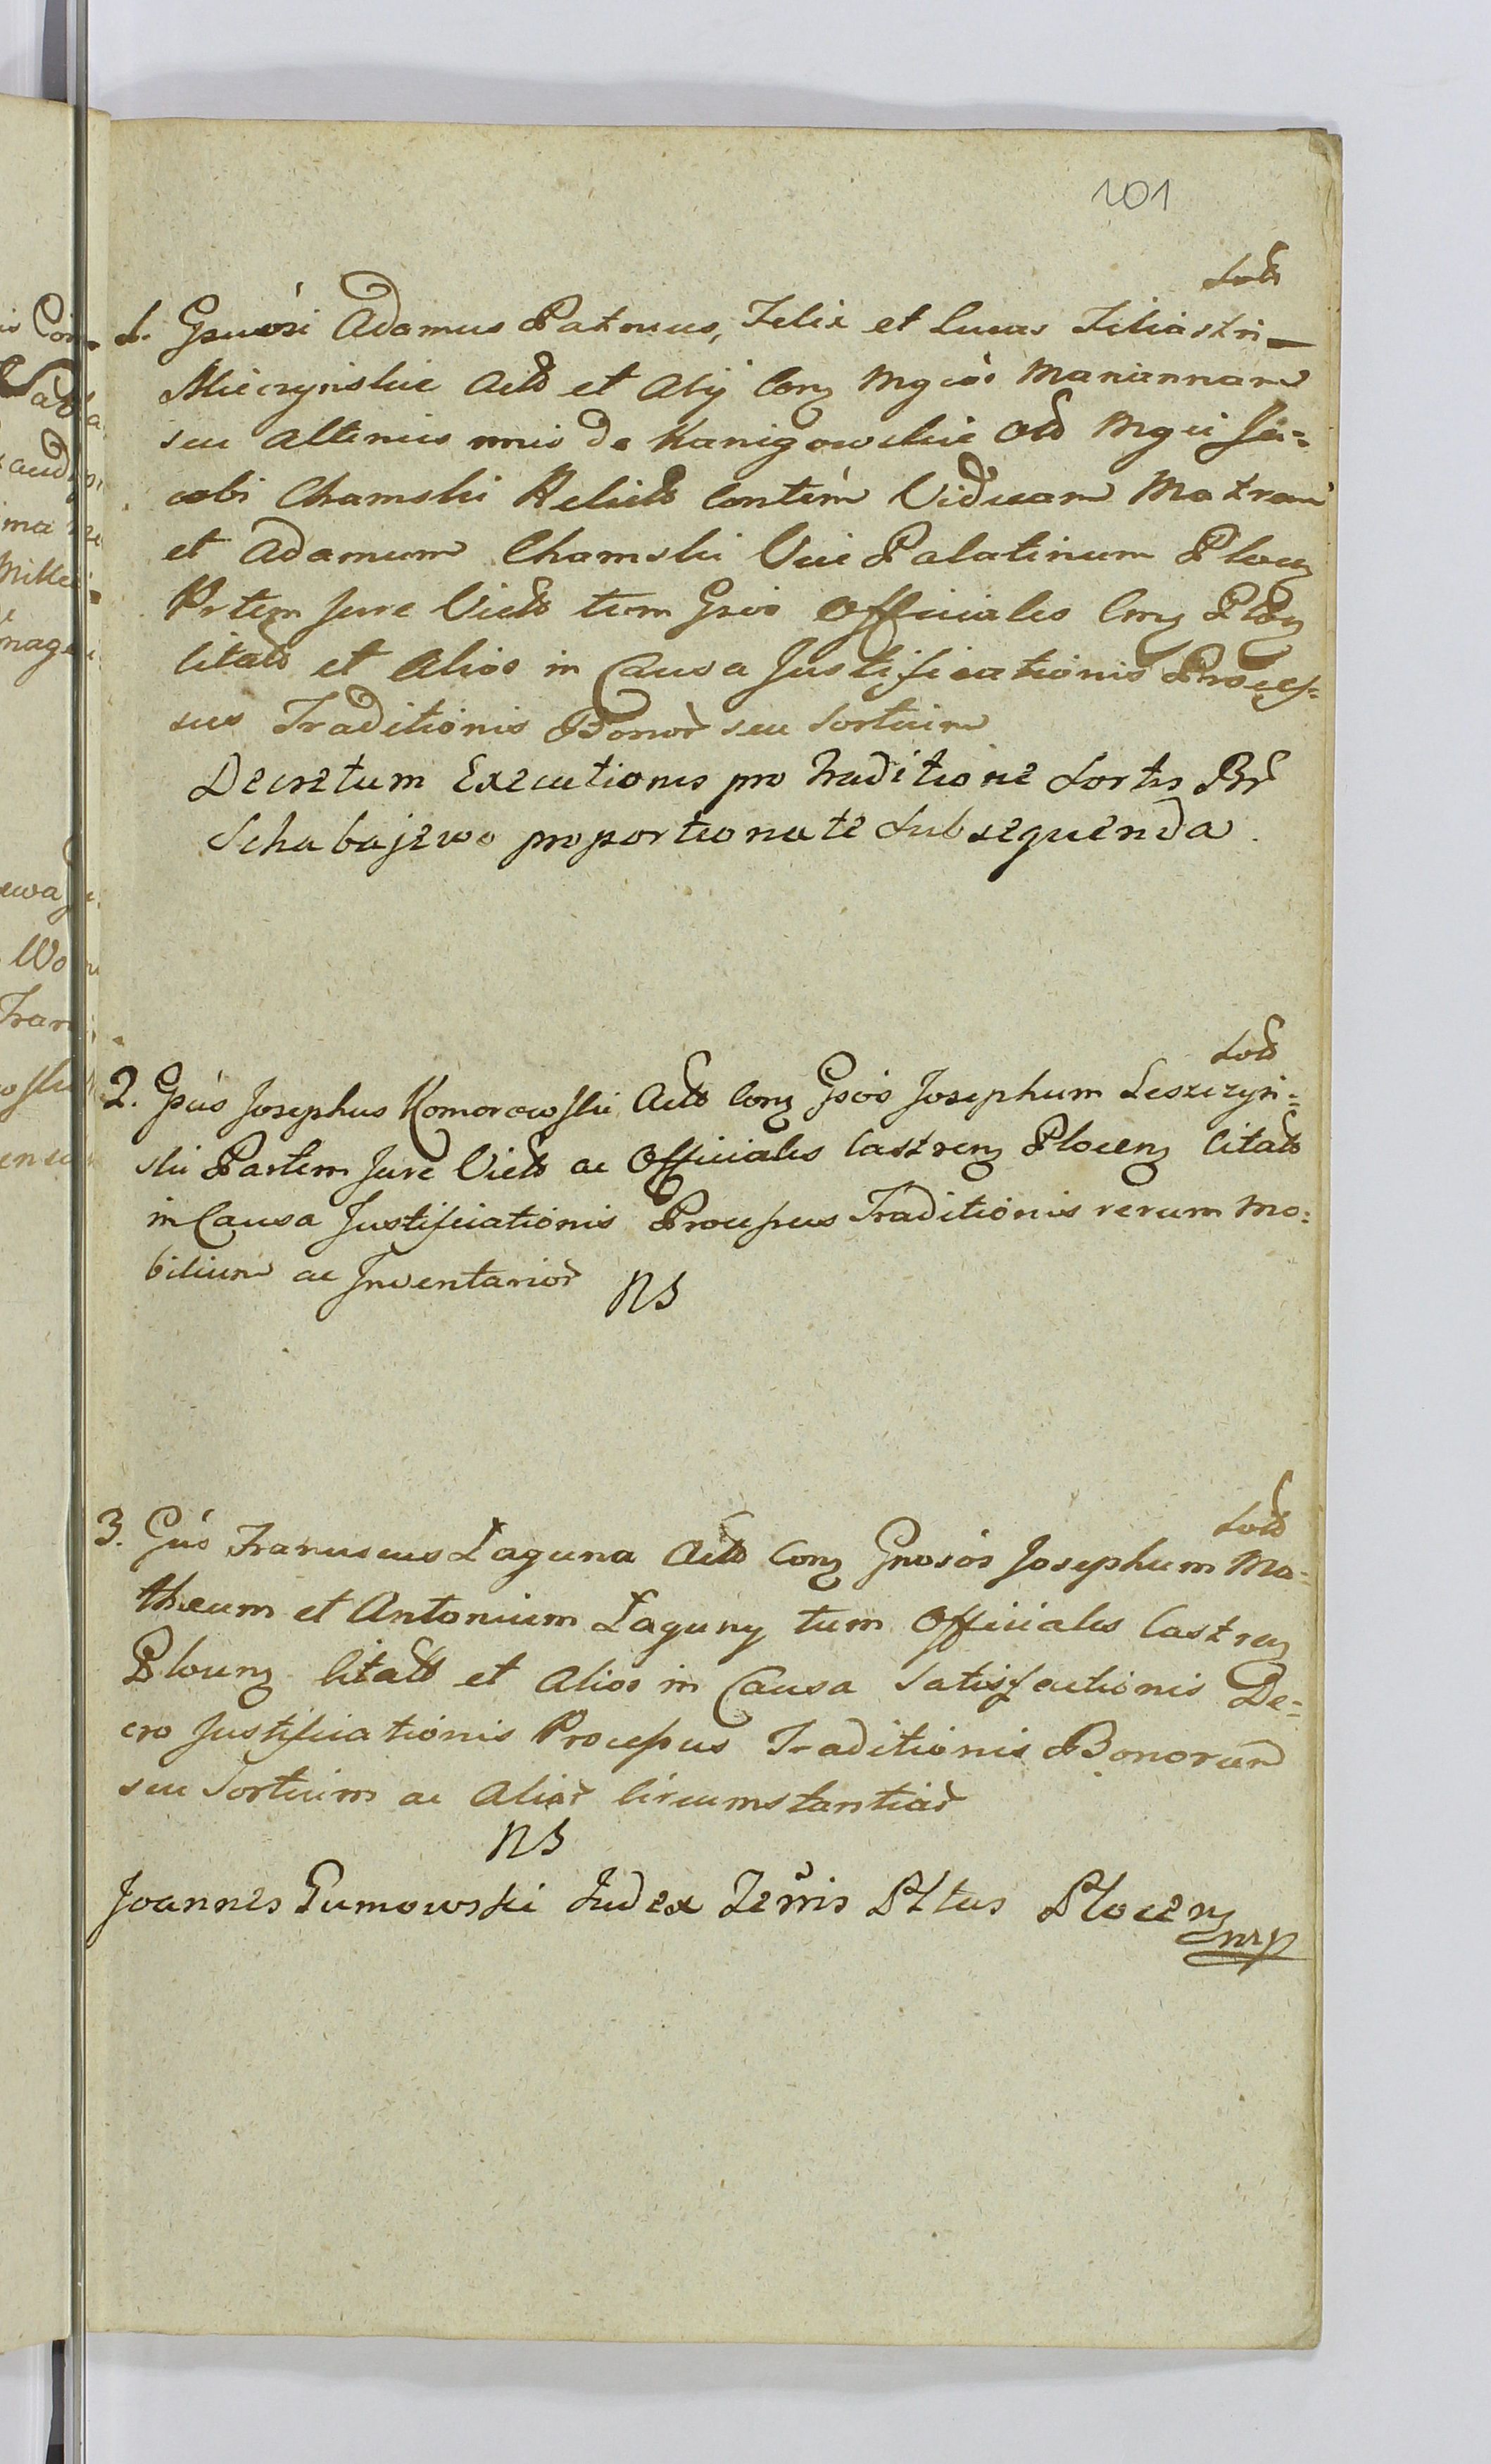 101
Sotd
1. Gnuósi Adamus Patruus, Felix et Lucas Filiastri
Mieczynskie Actō et Alij Conz Mgcós Mariannam
seu Alterius nnis de Kanigowskie Olō Mgci Ja=
cobi Chamski Relictō Contém Viduam Matrem
et Adamum Chamski Vice Palatinum Plocz
Prtem Jure Victō tum Gsios Officiales Crnz Plocz
Citatō et Alios in Causa Justificationis Proces=
sus Traditionis Bonor̄ seu Sortium
Decretum Executionis pro Traditione Sortis Br̄
Schabajewo proportionate Subsequenda.
Sotd
2. Gsus Josephus Komorowski Actō Conz Gsiós Josephum Leszczyn=
ski Partem Jure Victō ac Officiales Castrenz Plocenz Citatō
in Causa Justificationis Processus Traditionis rerum Mo=
bilium ac Inventarior̄ NS
Sotd
3. Gus Franciscus Łaguna Actō Conz Gnosós Josephum Ma=
thæum et Antonium Łaguny tum Officiales Castrenz
Plocenz Citatō et Alios in Causa Satisfactionis De=
cro Justificationis Processus Traditionis Bonorum
seu Sortium ac Aliar̄ Circumstantiar̄
NS
Joannes Gumowski Judex Terris Pltus Plocenz
mp